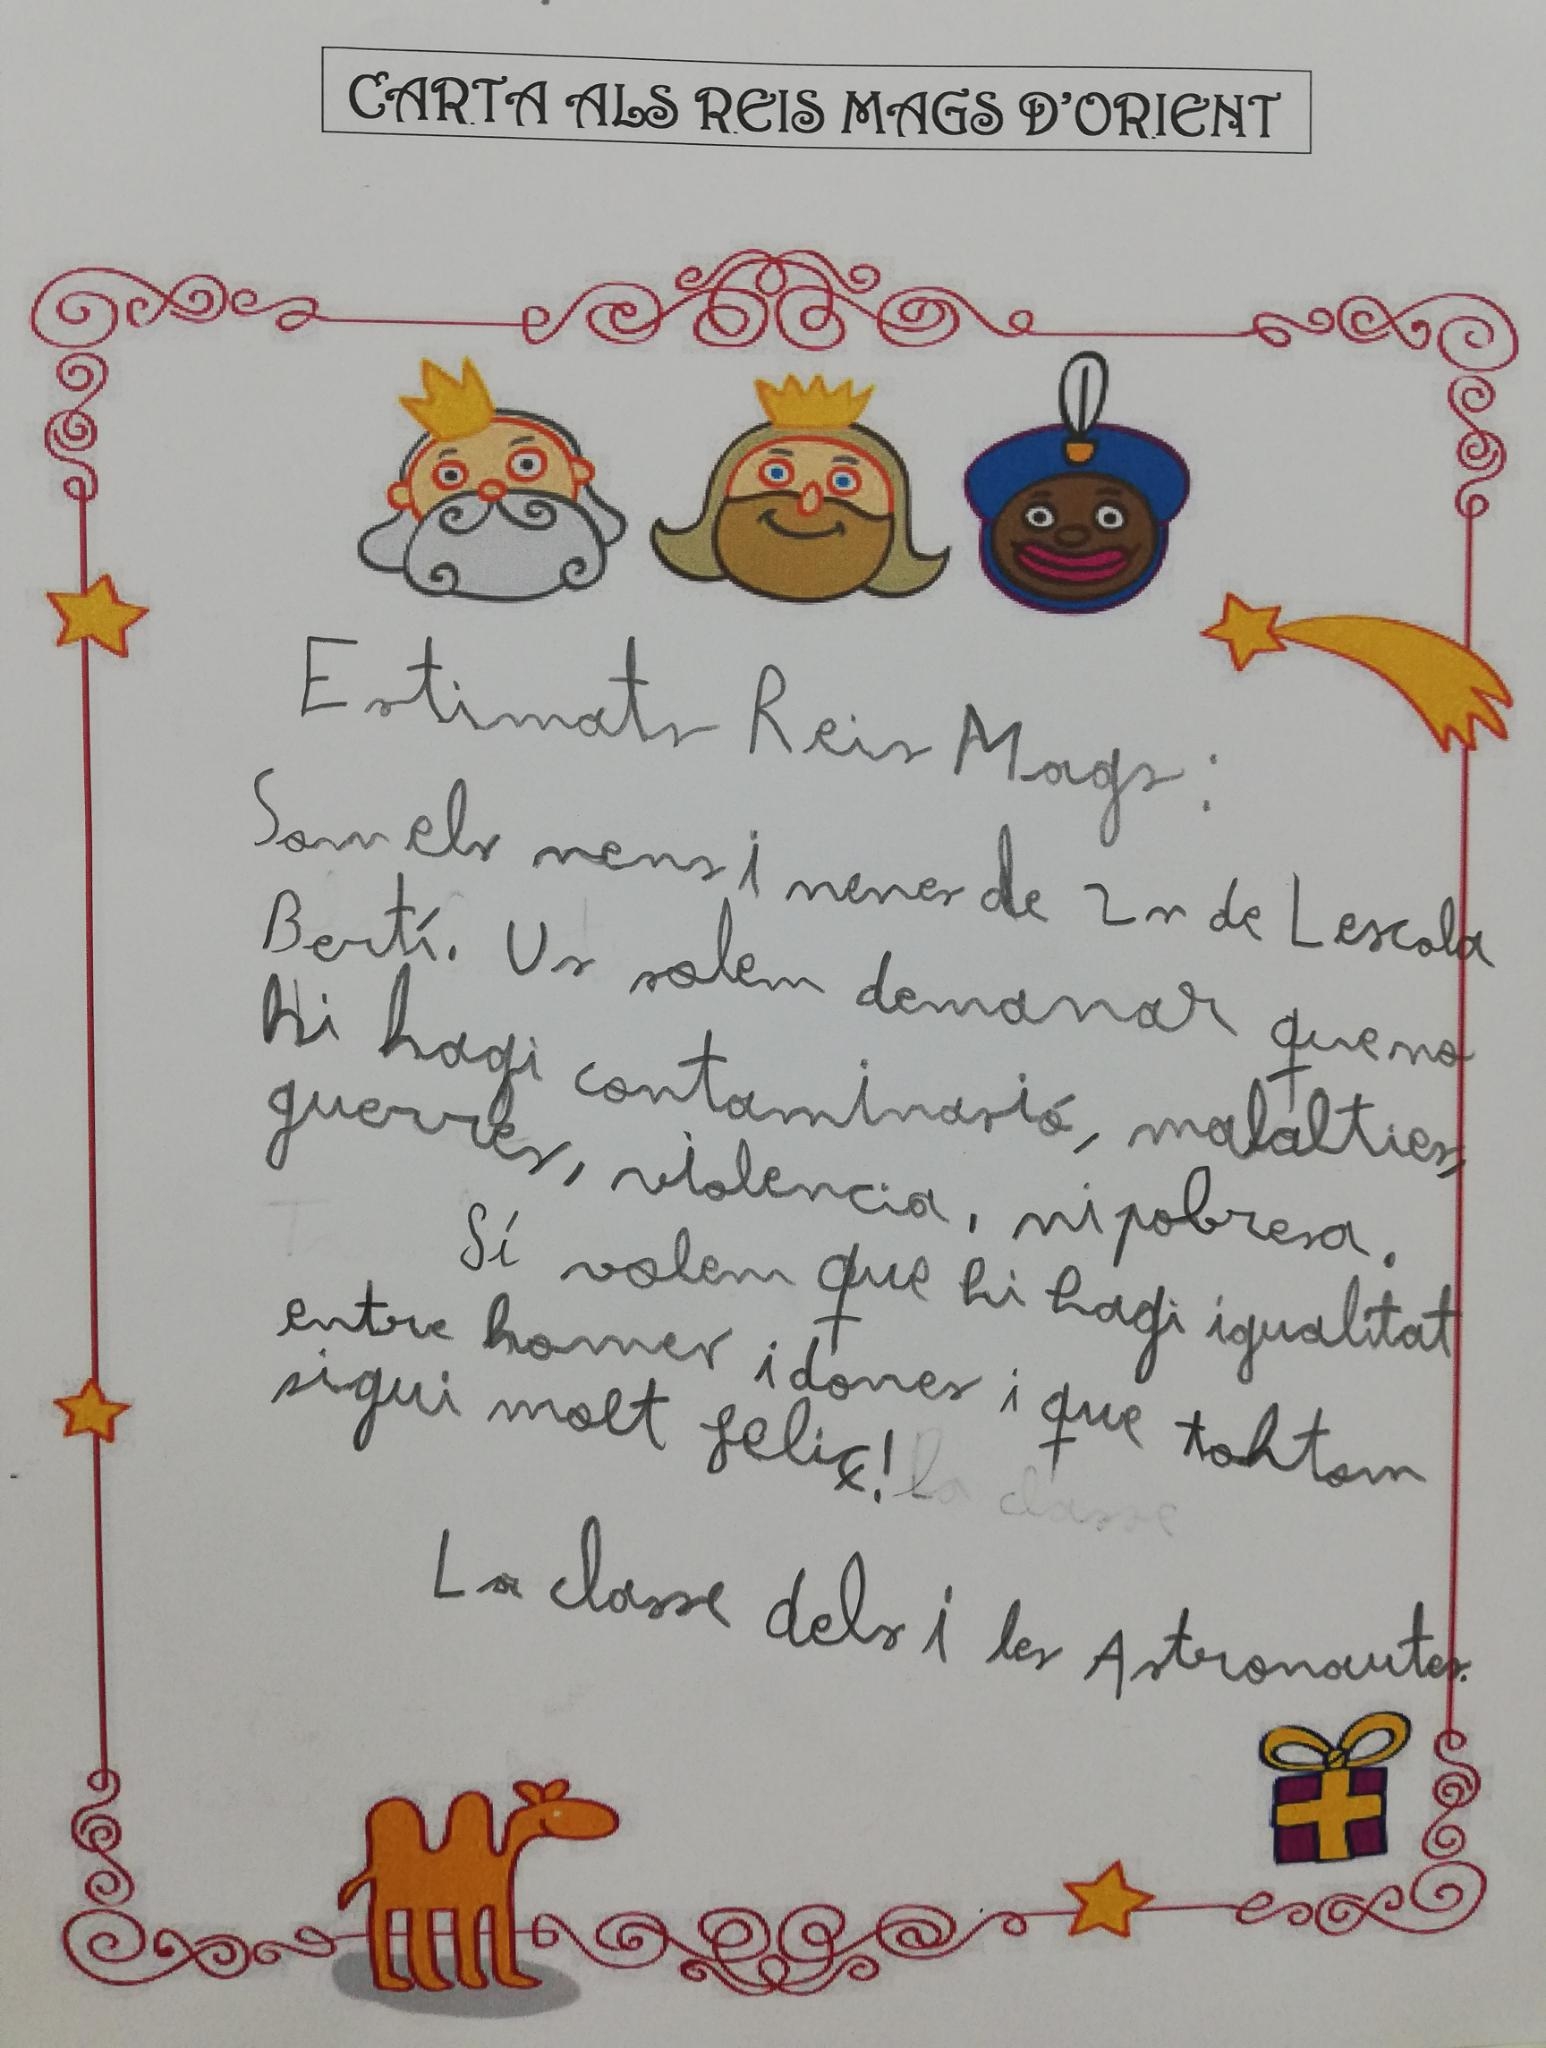 CARTA ALS REIS MAGS D'ORIENT
Estimats Reis Mags:
Som els nens i nenes de 2n de Lescola
Bertí. Us solem demanar que no
hi hagi contaminasió, malalties,
guerres, violencia, ni pobresa.
Sí volem que hi hagi igualitat
entre homes i dones i que tohtom
sigui molt feliç! la classe
La classe dels i les Astronautes.